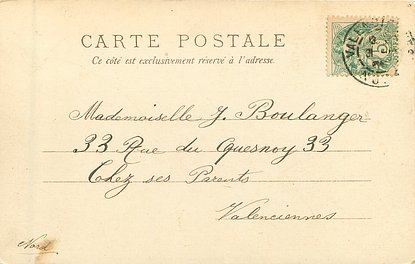 CARTE POSTALE
Ce côté est exclusivement réservé à l'adresse.
VALEN
5
Mademoiselle J. Boulanger
33 Rue du Quesnoy 33
Chez ses Parents
Valenciennes
Nord